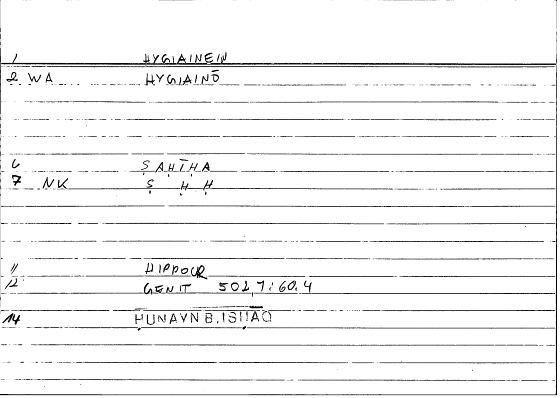 1 HYGIAINEIN
2 WA HYGIAINŌ
6 ṢAḤĪḤA
7 NK Ṣ Ḥ Ḥ
11 HIPPOCR
12 GENIT 502,7:60.4
14 ḤUNAYN B. ISḤĀQ